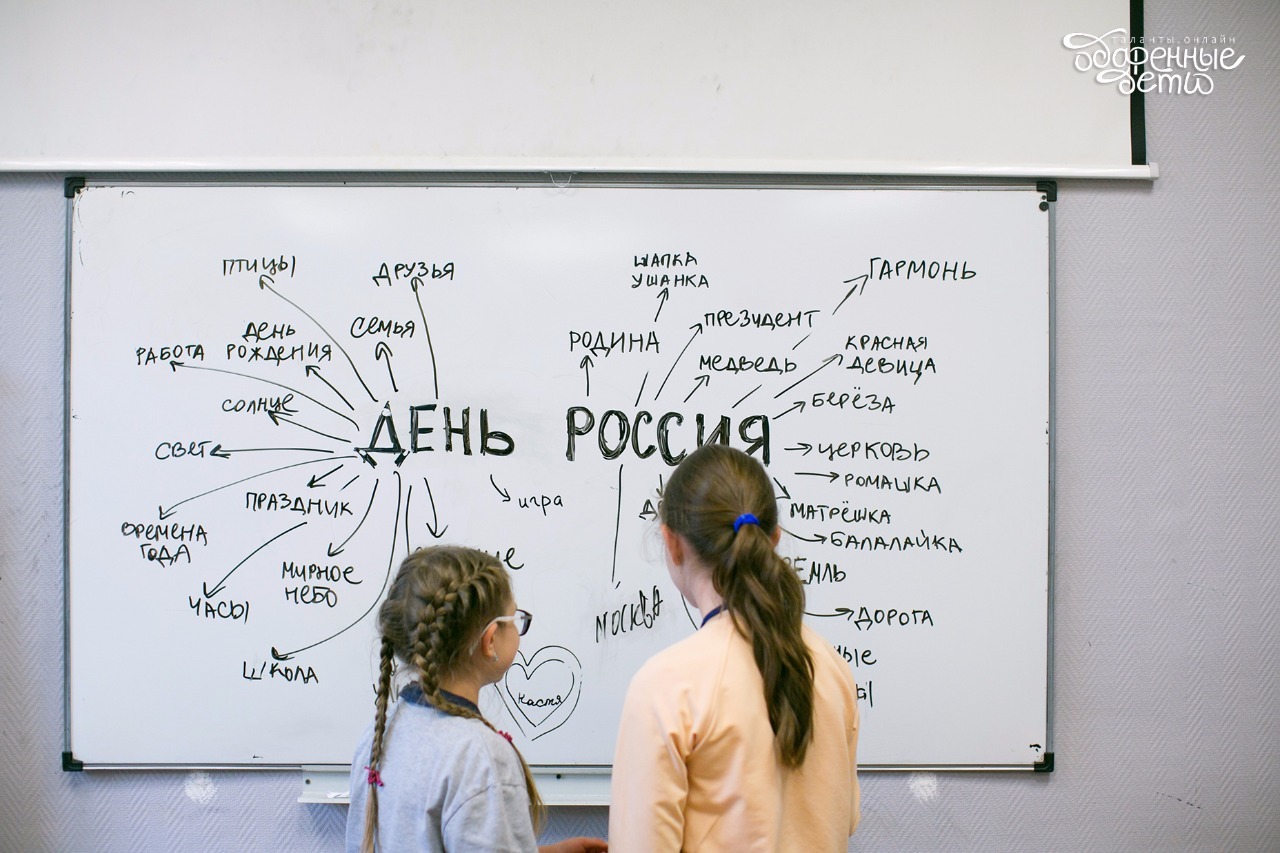 таланты.онлайн
Одаренные
дети
ПТИЦЫ
ДРУЗЬЯ
ШАПКА
УШАНКА
ГАРМОНЬ
ДЕНЬ
РОЖДЕНИЯ
СЕМЬЯ
РОДИНА
ПРЕЗИДЕНТ
РАБОТА
МЕДВЕДЬ
КРАСНАЯ
ДЕВИЦА
СОЛНЦЕ
БЕРЁЗА
ДЕНЬ РОССИЯ
СВЕТ
ЦЕРКОВЬ
РОМАШКА
ПРАЗДНИК
игра
МАТРЁШКА
ВРЕМЕНА
ГОДА
БАЛАЛАЙКА
МИРНОЕ
НЕБО
ЧАСЫ
МОСКВА
ДОРОГА
ШКОЛА
Настя